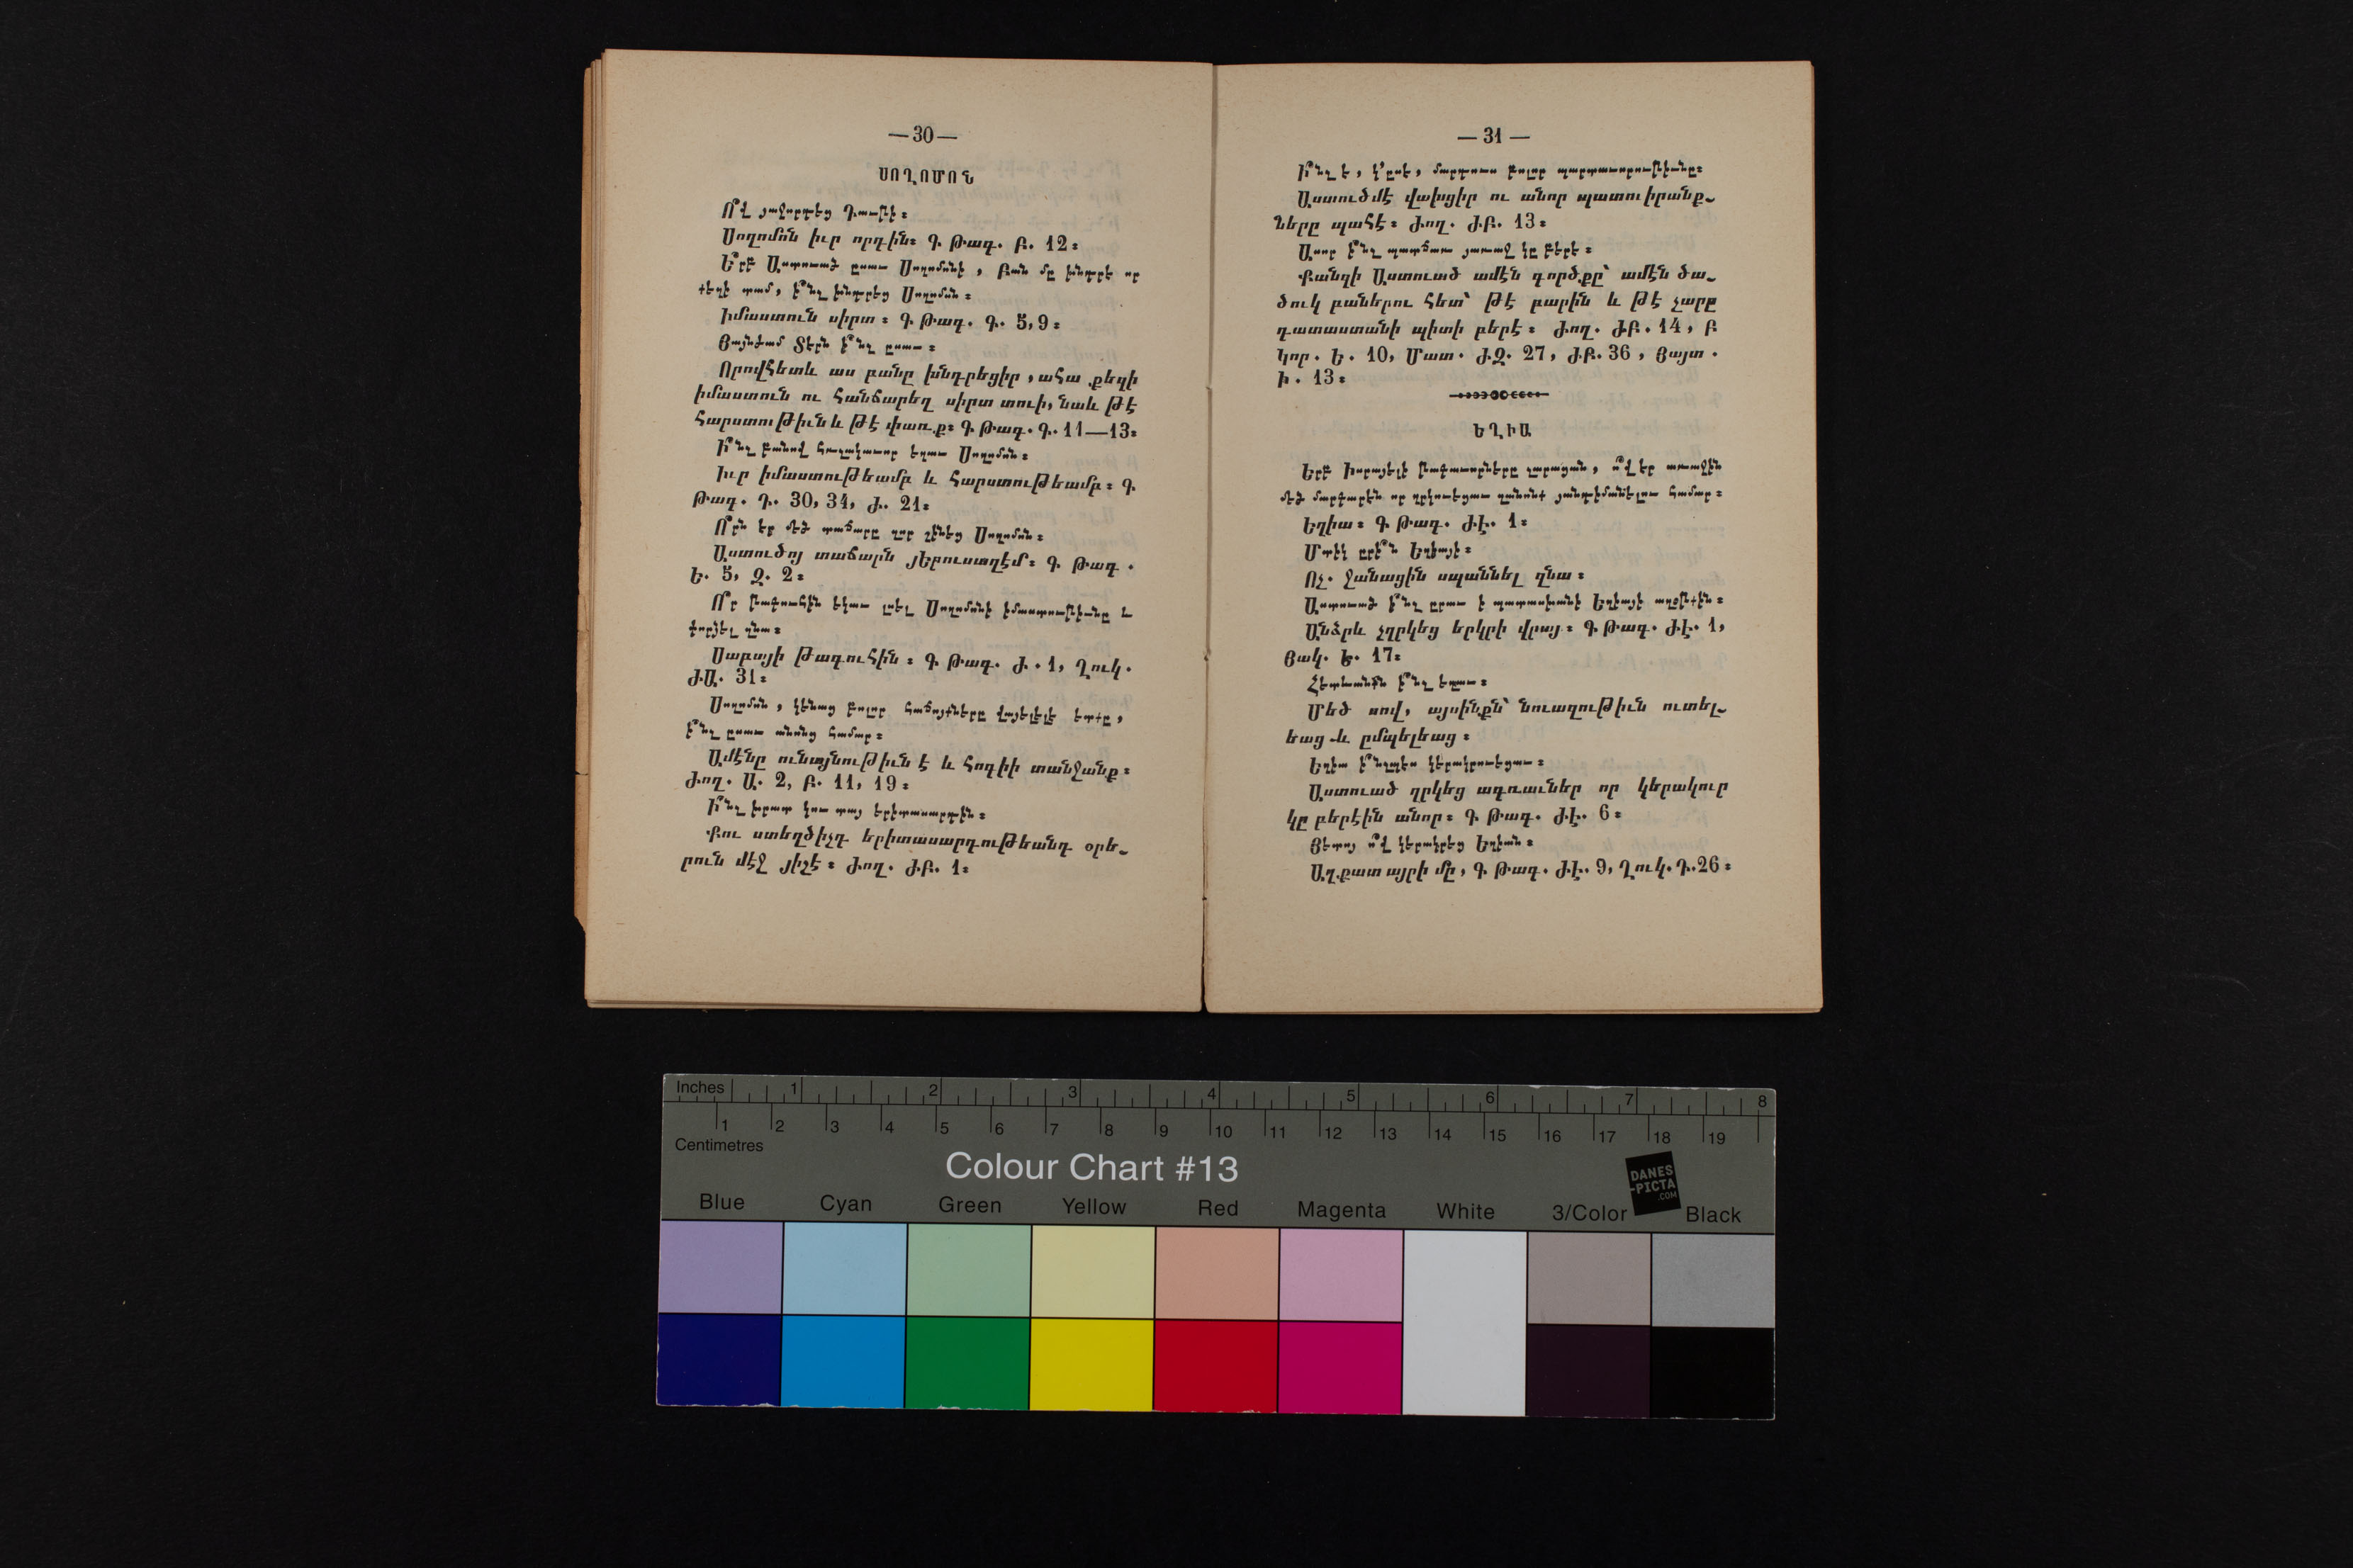 —30—
ՍՈՂՈՄՈՆ
Ո՞վ յաջորդեց Դաւթի։
Սողոմոն իւր որդին։ Գ. Թագ. Բ. 12։
Ե՞րբ Աստուած ըսաւ Սողոմոնի, Բան մը խնդրէ որ
քեզի տամ, ի՞նչ խնդրեց Սողոմոն։
Իմաստուն սիրտ։ Գ. Թագ. Գ. 5, 9։
Յայնժամ Տէրն ի՞նչ ըսաւ։
Որովհետև աս բանը խնդրեցիր, ահա քեզի
իմաստուն ու հանճարեղ սիրտ տուի, նաև թէ
հարստութիւն և թէ փառք։ Գ. Թագ. Գ. 11—13։
Ի՞նչ բանով հռչակաւոր եղաւ Սողոմոն։
Իւր իմաստութեամբ և հարստութեամբ։ Գ.
Թագ. Դ. 30, 34, Ժ. 21։
Ո՞րն էր մեծ տաճարը զոր շինեց Սողոմոն։
Աստուծոյ տաճարն յԵրուսաղէմ։ Գ. Թագ.
Ե. 5, Զ. 2։
Ո՞ր թագուհին եկաւ լսել Սողոմոնի իմաստութիւնը և
փորձել զնա։
Սաբայի թագուհին։ Գ. Թագ. Ժ. 1, Ղուկ.
ԺԱ. 31։
Սողոմոն, կենաց բոլոր հաճոյքները վայելելէ ետքը,
ի՞նչ ըսաւ անոնց համար։
Ամէնը ունայնութիւն է և հոգիի տանջանք։
Ժող. Ա. 2, Բ. 11, 19։
Ի՞նչ խրատ կու տայ երիտասարդին։
Քու ստեղծիչդ երիտասարդութեանդ օրե֊
րուն մէջ յիշէ։ Ժող. ԺԲ. 1։
— 31 —
Ի՞նչ է, կ՚ըսէ, մարդուս բոլոր պարտաւորութիւնը։
Աստուծմէ վախցիր ու անոր պատուիրանք֊
ները պահէ։ Ժող. ԺԲ. 13։
Ասոր ի՞նչ պատճառ յառաջ կը բերէ։
Քանզի Աստուած ամէն գործքը՝ ամէն ծա֊
ծուկ բաներու հետ՝ թէ բարին և թէ չարը
դատաստանի պիտի բերէ։ Ժող. ԺԲ. 14, Բ
Կոր. Ե. 10, Մատ. ԺԶ. 27, ԺԲ. 36, Յայտ.
Ի. 13։
ԵՂԻԱ
Երբ Իսրայէլի թագաւորները չարացան, ո՞վ էր առաջին
մեծ մարգարէն որ ղրկուեցաւ զանոնք յանդիմանելու համար։
Եղիա։ Գ. Թագ. ԺԷ. 1։
Մտիկ ըրի՞ն Եղիայի։
Ոչ. ջանացին սպաննել զնա։
Աստուած ի՞նչ ըրաւ ի պատասխանի Եղիայի աղօթքին։
Անձրև չղրկեց երկրի վրայ։ Գ. Թագ. ԺԷ. 1,
Յակ. Ե. 17։
Հետևանքն ի՞նչ եղաւ։
Մեծ սով, այսինքն՝ նուաղութիւն ուտել֊
եաց և ըմպելեաց։
Եղիա ի՞նչպէս կերակրուեցաւ։
Աստուած ղրկեց ագռաւներ որ կերակուր
կը բերէին անոր։ Գ. Թագ. ԺԷ. 6։
Յետոյ ո՞վ կերակրեց Եղիան։
Աղքատ այրի մը, Գ. Թագ. ԺԷ. 9, Ղուկ. Դ. 26։
Inches 1 2 3 4 5 6 7 8
1 2 3 4 5 6 7 8 9 10 11 12 13 14 15 16 17 18 19
Centimetres
Colour Chart #13
DANES
-PICTA
.COM
Blue Cyan Green Yellow Red Magenta White 3/Color Black